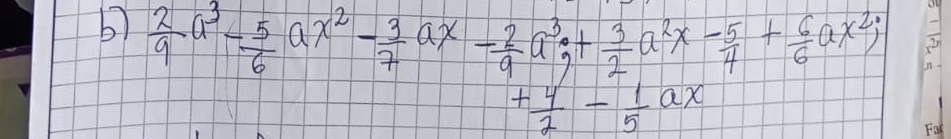 b) 2/9 a³ - 5/6 ax² - 3/7 ax - 2/9 a³; + 3/2 a²x - 5/4 + 6/6 ax²;
+ 4/2 - 1/5 ax